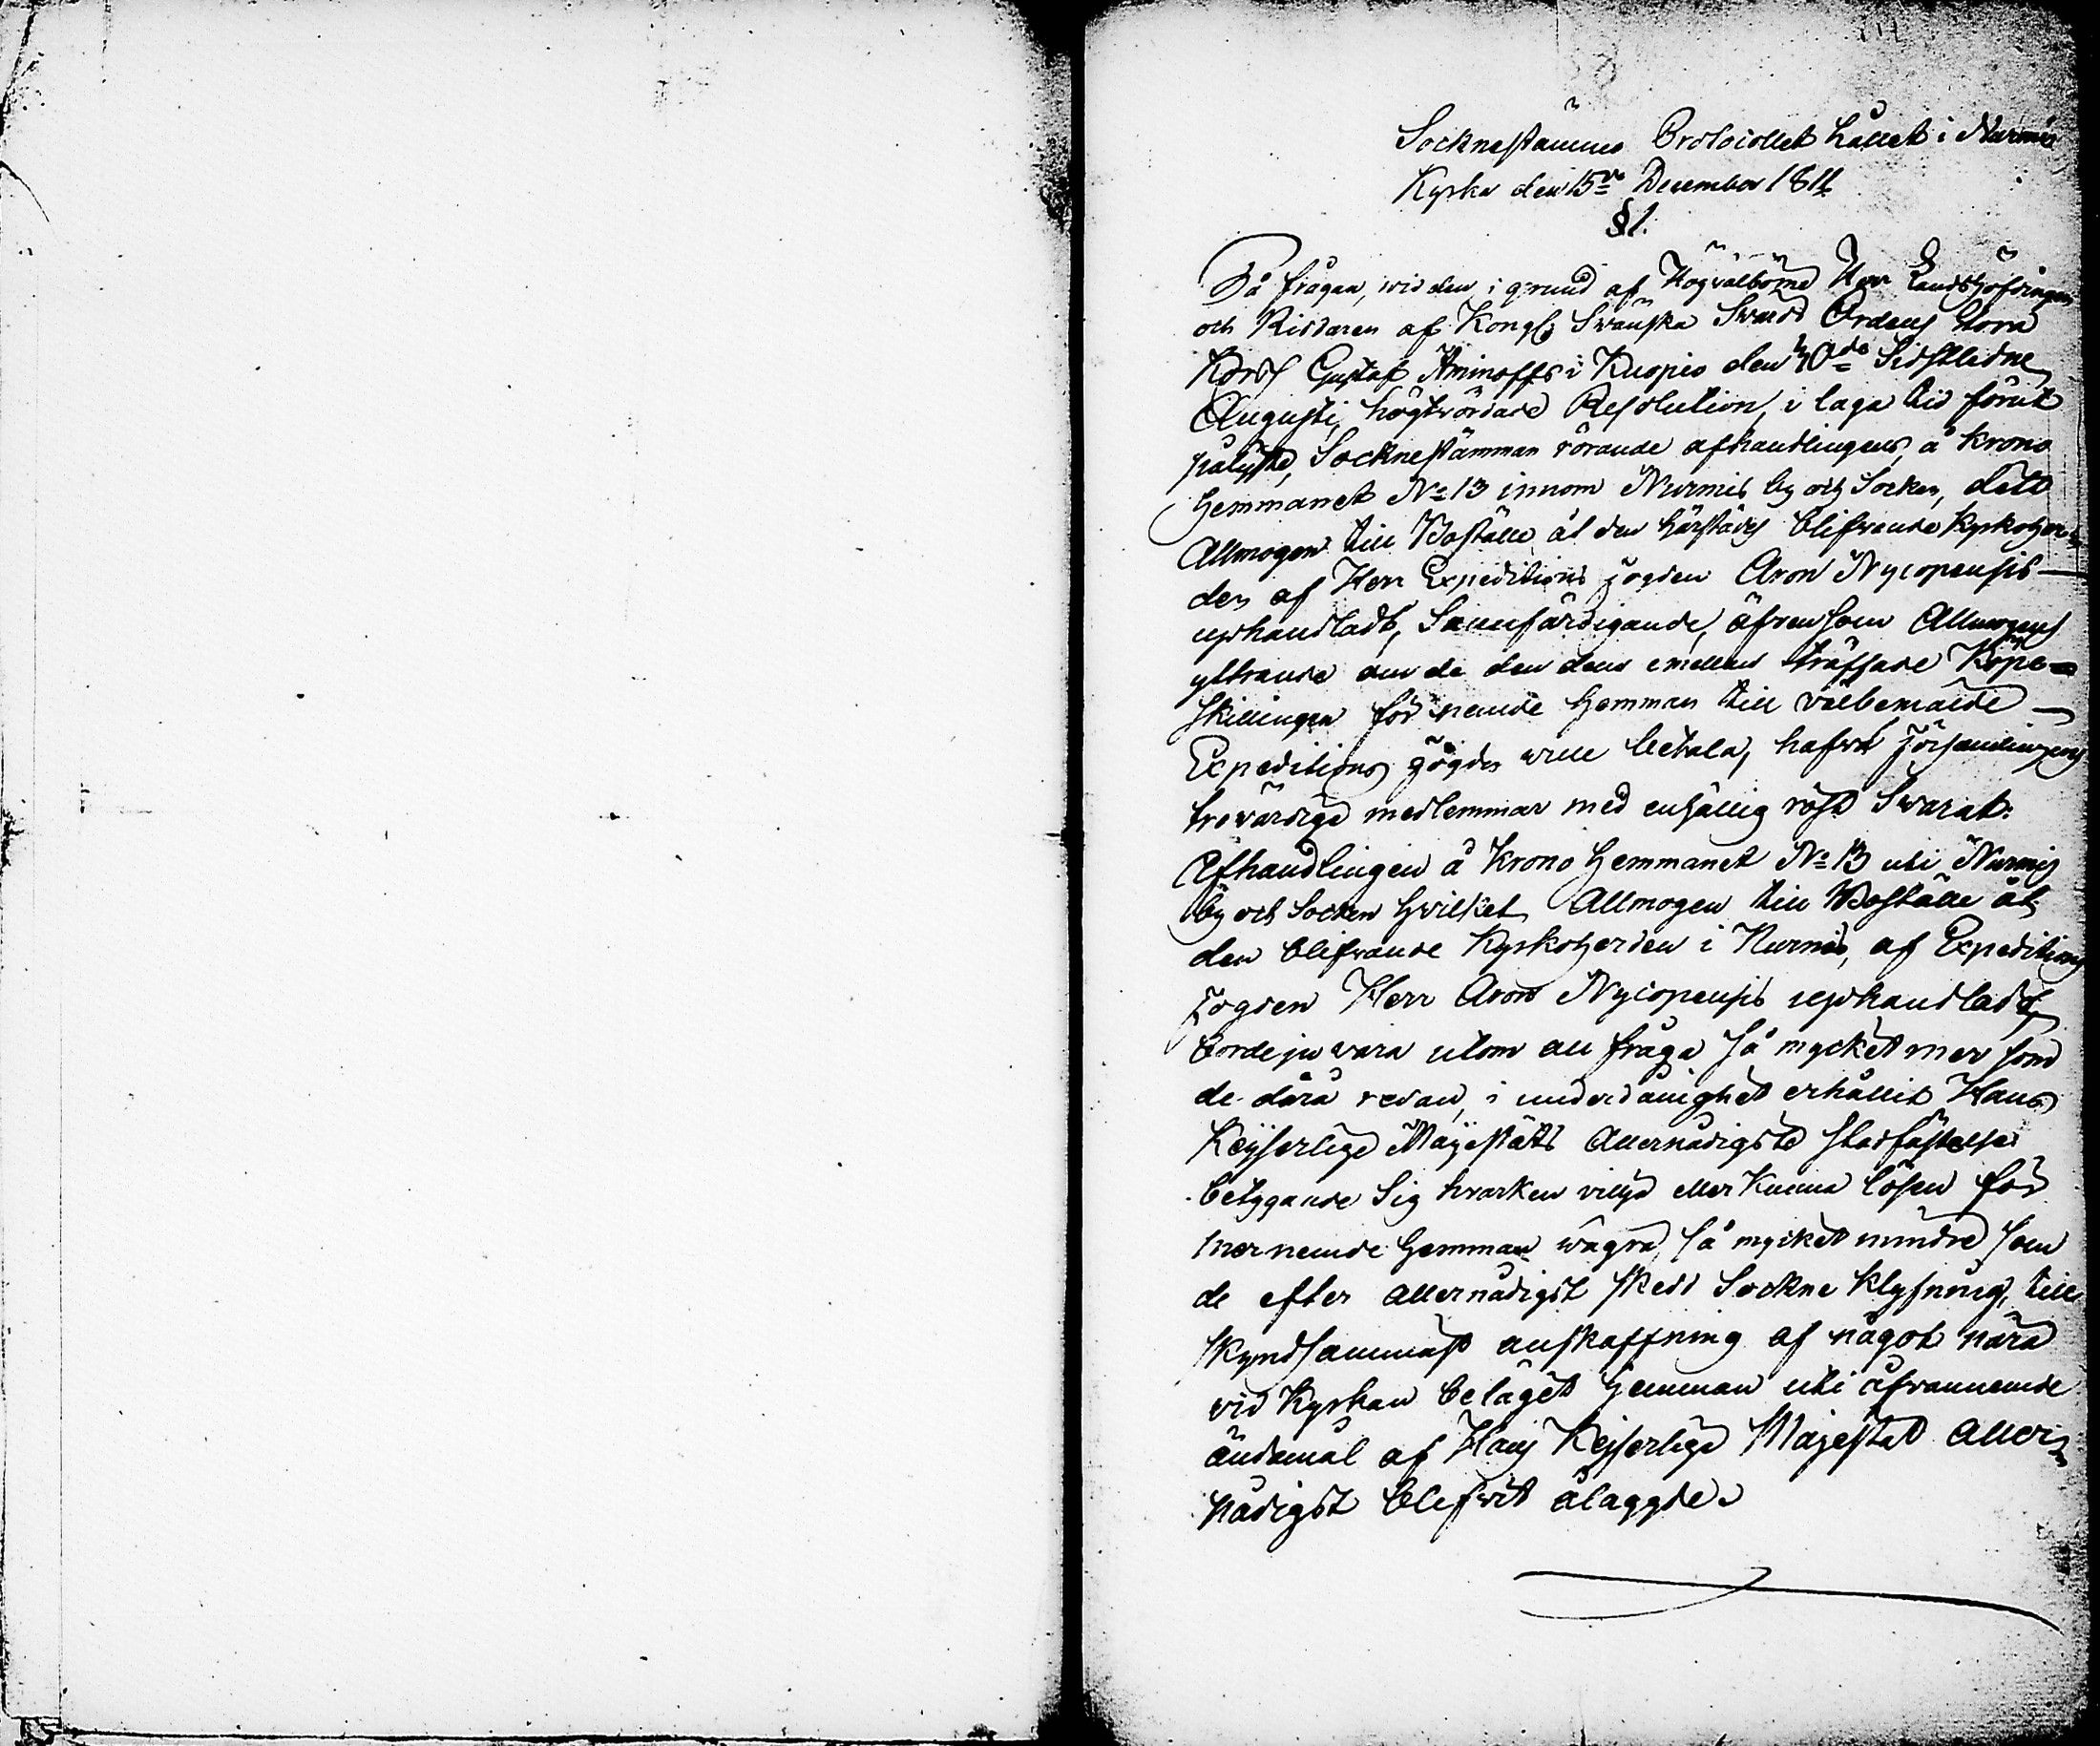 Socknestämmo Protocollet hållet i Nurmis
Kyrka den 15de December 1811
§1.
På frågan, wid den i grund af Högvälborne Herr Landshöfdingen
och Riddaren af Kongl. Swänska Swärds Ordens Stora
Kors Gustaf Aminoffs i Kuopio den 30de Sidstledne
Augusti, högtvördade Resolution, i laga tid förut
pålyste, Socknestämman rörande afhandlingens, å krono
Hemmanet No 13 innom Nurmis by och Socken, detta
Allmogen till Boställe åt den härstädes blifvande Kyrkoher
den af Herr Expeditions Fogden Aron Nycopensis
uphandladt, Sannfärdigande, äfvensom Allmogens
yttrande om de den dem emellan träffade Köpe
skillingen för nemde Hemman till välbemälde
Expeditions Fogde wille betala, hafva Församlingens
trovärdige medlemmar med enhällig röst Svarat:
Afhandlingen å krono Hemmanet No 13 uti Nurmis
by och Socken hvilket Allmogen till Boställe åt
den blifvande Kyrkoherden i Nurmis, af Expeditions
Fogden Herr Aron Nycopensis uphandladt,
borde ju vara utom all fråga så mycket mer som
de därå redan, i underdånighet erhållit Hans
Keijserlige Majestäts Allernådigste stadfästelse
betygande Sig hvarken vilja eller kunna lösen för
mernemde Hemman wägra, så mycket mindre som
de efter allernådigst skedd Sockne Klyfning, till
skyndsammast anskaffning af något nära
vid Kyrkan belägit Hemman uti åfvannemde
ändamål af Hans Keijserlige Majestät Aller
nådigst blifvit ålaggde.